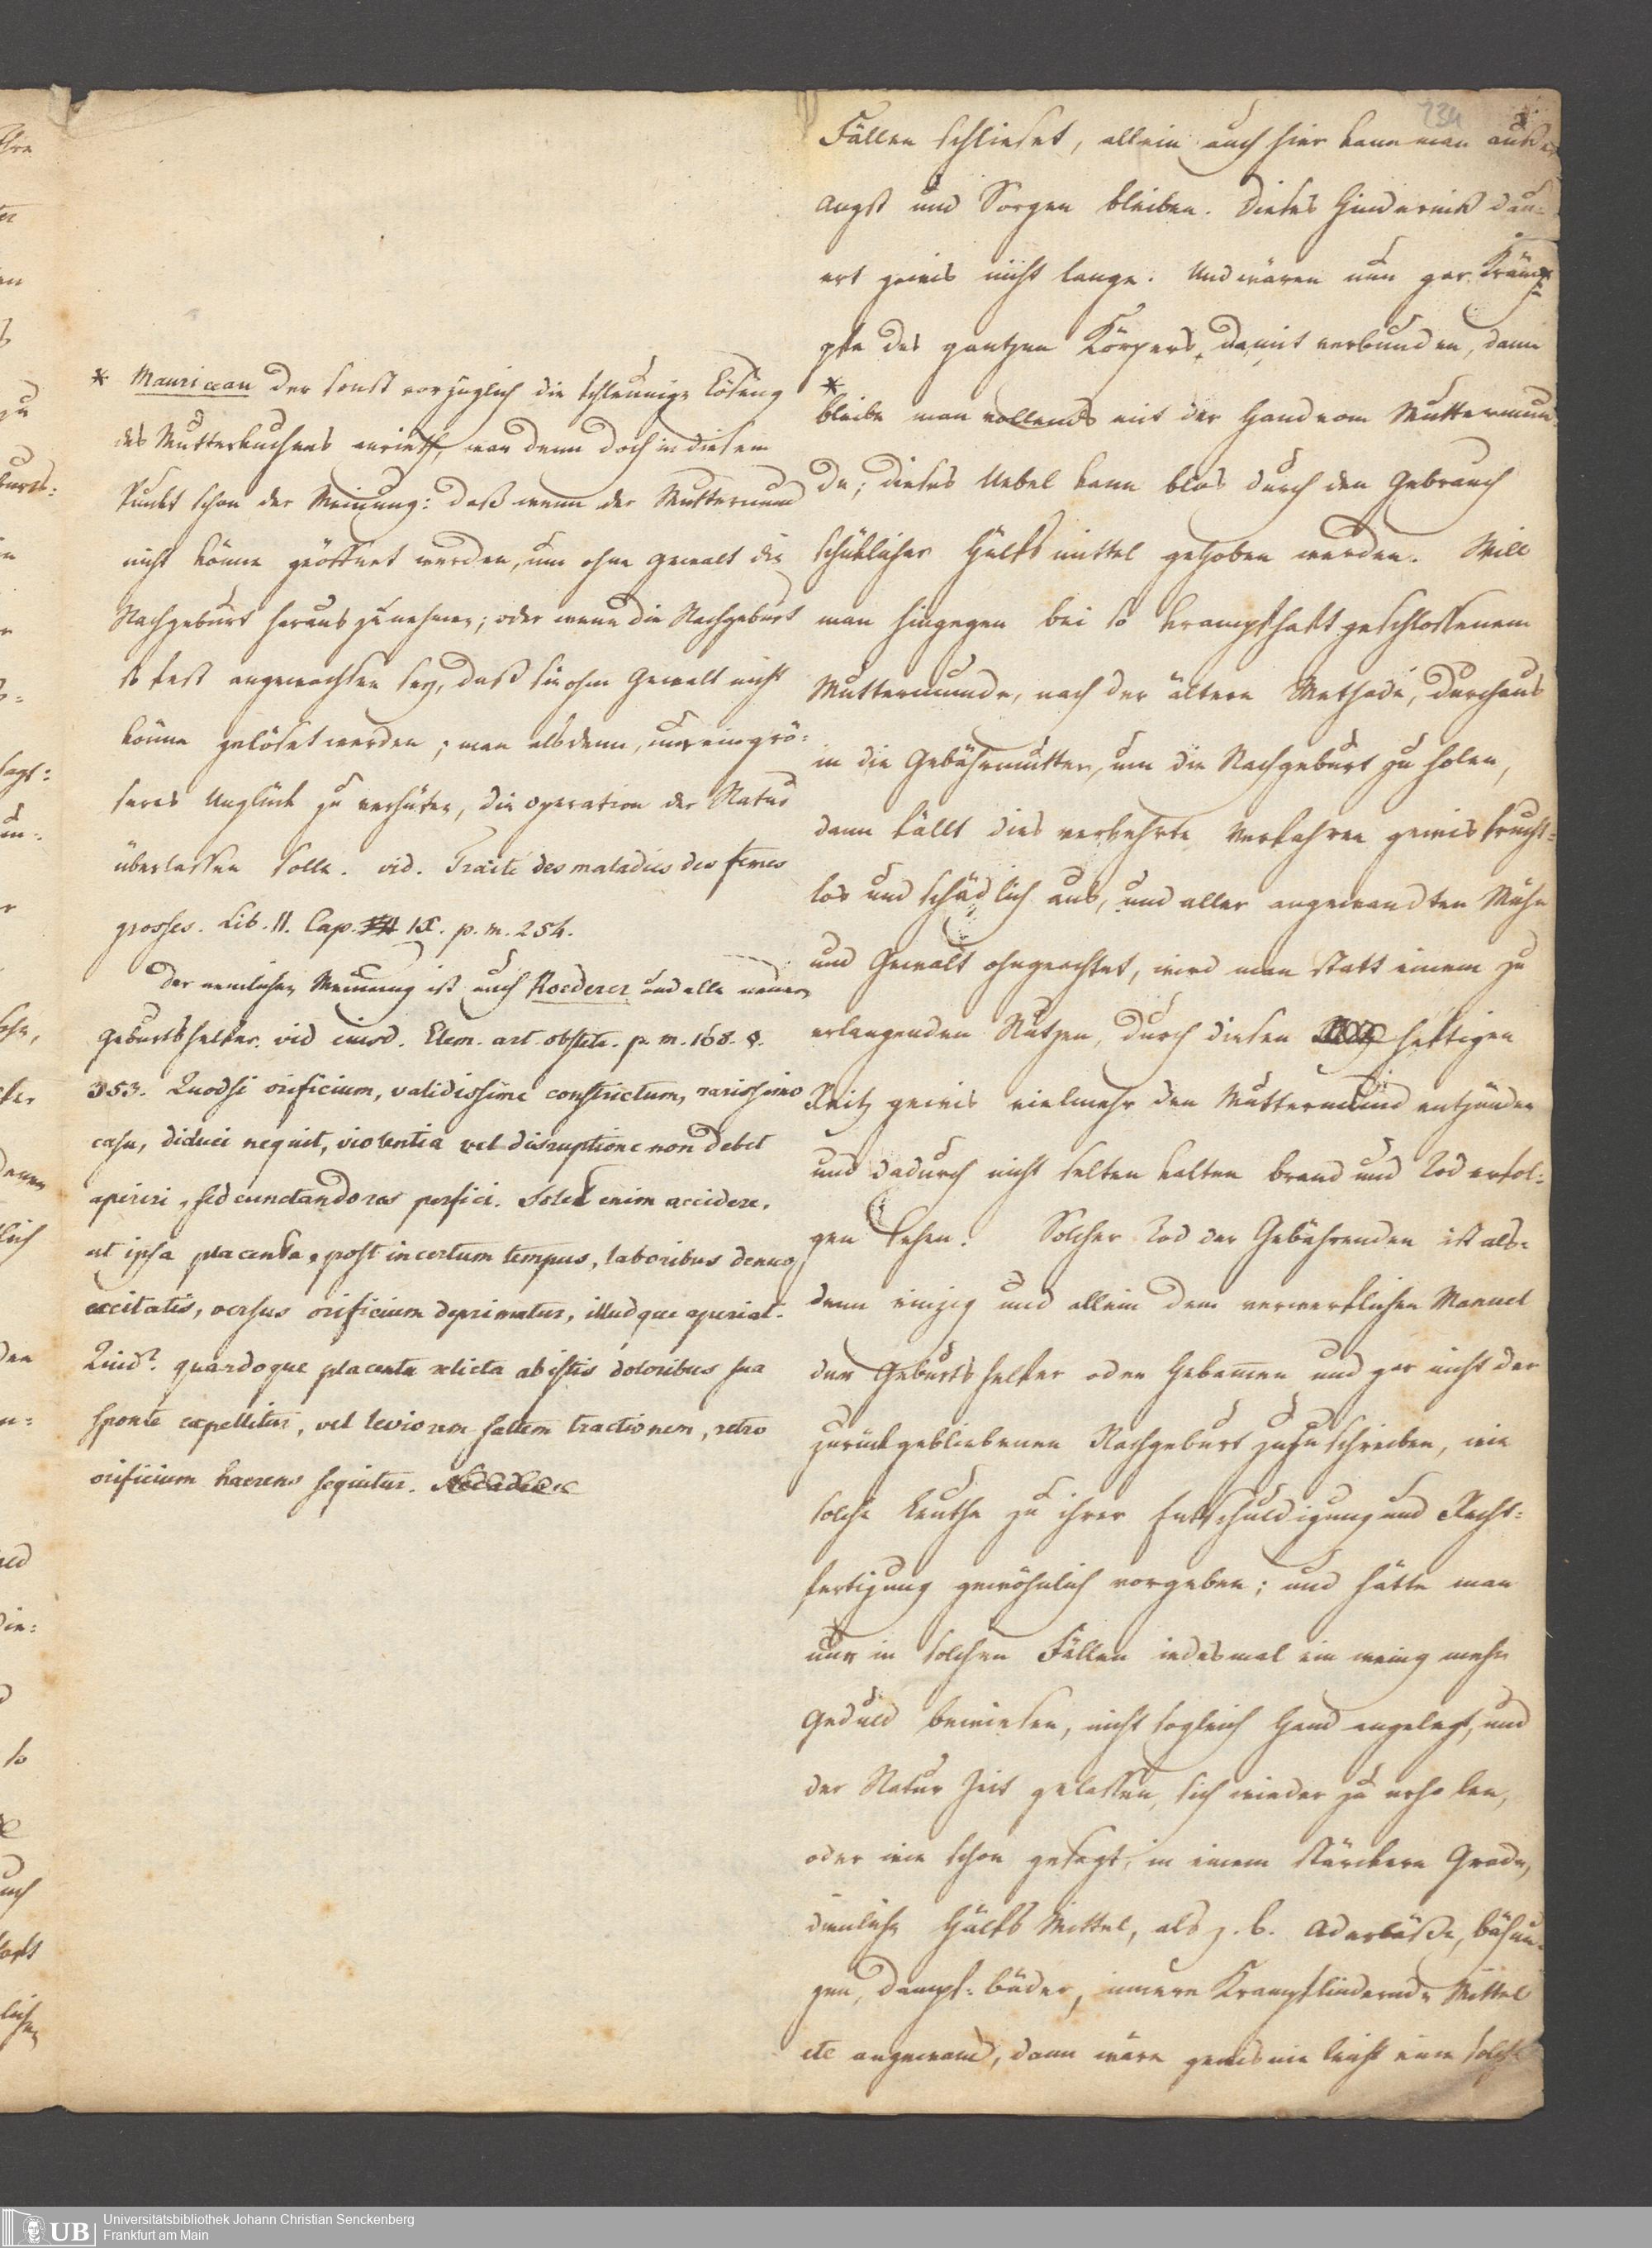 234
Fällen schlieset, allein auch hier kann man außer
angst und Sorgen bleiben. Dieses Hinderniß dau-
ert gewis nicht lange. Und wären nun gar Kräm-
pfe des gantzen Körpers damit verbunden, dann
*
bleibe man vollends mit der Hand vom Muttermun-
de; dieses Uebel kann blos durch den Gebrauch
schicklicher Hülfsmittel gehoben werden. Will
man hingegen bei so krampfhaft geschlossenem
Muttermunde, nach der ältern Methode, durchaus
in die Gebährmutter, um die Nachgeburt zu holen,
dann fällt dies verkehrte Verfahren gewis frucht-
los und schädlich aus, und aller angewandten Mühe
und Gewalt ohngeachtet, wird man statt einem zu
erlangenden Nutzen, durch diesen heftigen
Reitz gewis vielmehr den Muttermund entzünden
und dadurch nicht selten kalten brand und Tod erfol-
gen sehen. Solcher Tod der Gebährenden ist als-
dann einzig und allein dem verwerflichen Manuel
der Geburtshelfer oder Hebamen und gar nicht der
zurückgebliebenen Nachgeburt zuzuschreiben, wie
solche Leuthe zu ihrer Entschuldigung und Recht-
fertigung gewöhnlich vorgeben; und hätte man
nur in solchen Fällen iedesmal ein wenig mehr
Geduld bewiesen, nicht sogleich Hand angelegt, und
der Natur Zeit gelassen, sich wieder zu erholen,
oder wie schon gesagt, in einem stärckern Grade,
dienliche Hülfs Mittel, als z. b. Aderläße, bähun-
gen, Dampf-bäder, innere Krampflindernde Mittel
etc angewand, dann wäre gewis nie leicht eine solche
* Mauriceau der sonst vorzüglich die schleunige Lösung
des Mutterkuchens anrieth, war denn doch in diesem
Punkt schon der Meinung: daß wenn der Muttermund
nicht könne geöffnet werden, um ohne Gewalt die
Nachgeburt heraus zu nehmen; oder wenn die Nachgeburt
so fest angewachsen sey, daß sie ohne Gewalt nicht
könne gelöset werden; man alsdann, um ein grö-
seres Unglück zu verhüten, die operation der Natur
überlassen solle. vid. Traité des maladies des femes
grosses. Lib. II. Cap. IX. p. m. 254.
Der nemlichen Meinung ist auch Roederer und alle neuern
Geburtshelfer. vid eiusd. Elem. art. obstetr. p. m. 168. §.
353. Quodsi orificium, validissime constrictum, rarissimo
casu, diduci nequit, violentia vel disruptione non debet
aperiri, sed cunctando res perfici. Solet enim accidere,
ut ipsa placenta, post incertum tempus, laboribus denuo
excitatis, versus orificium deprimatur, illudque aperiat.
Quid? quandoque placenta relicta ab istis doloribus sua
sponte expellitur, vel leviorem saltem tractionem, retro
orificium haerens sequitur.
Universitätsbibliothek Johann Christian Senckenberg
Frankfurt am Main
UB